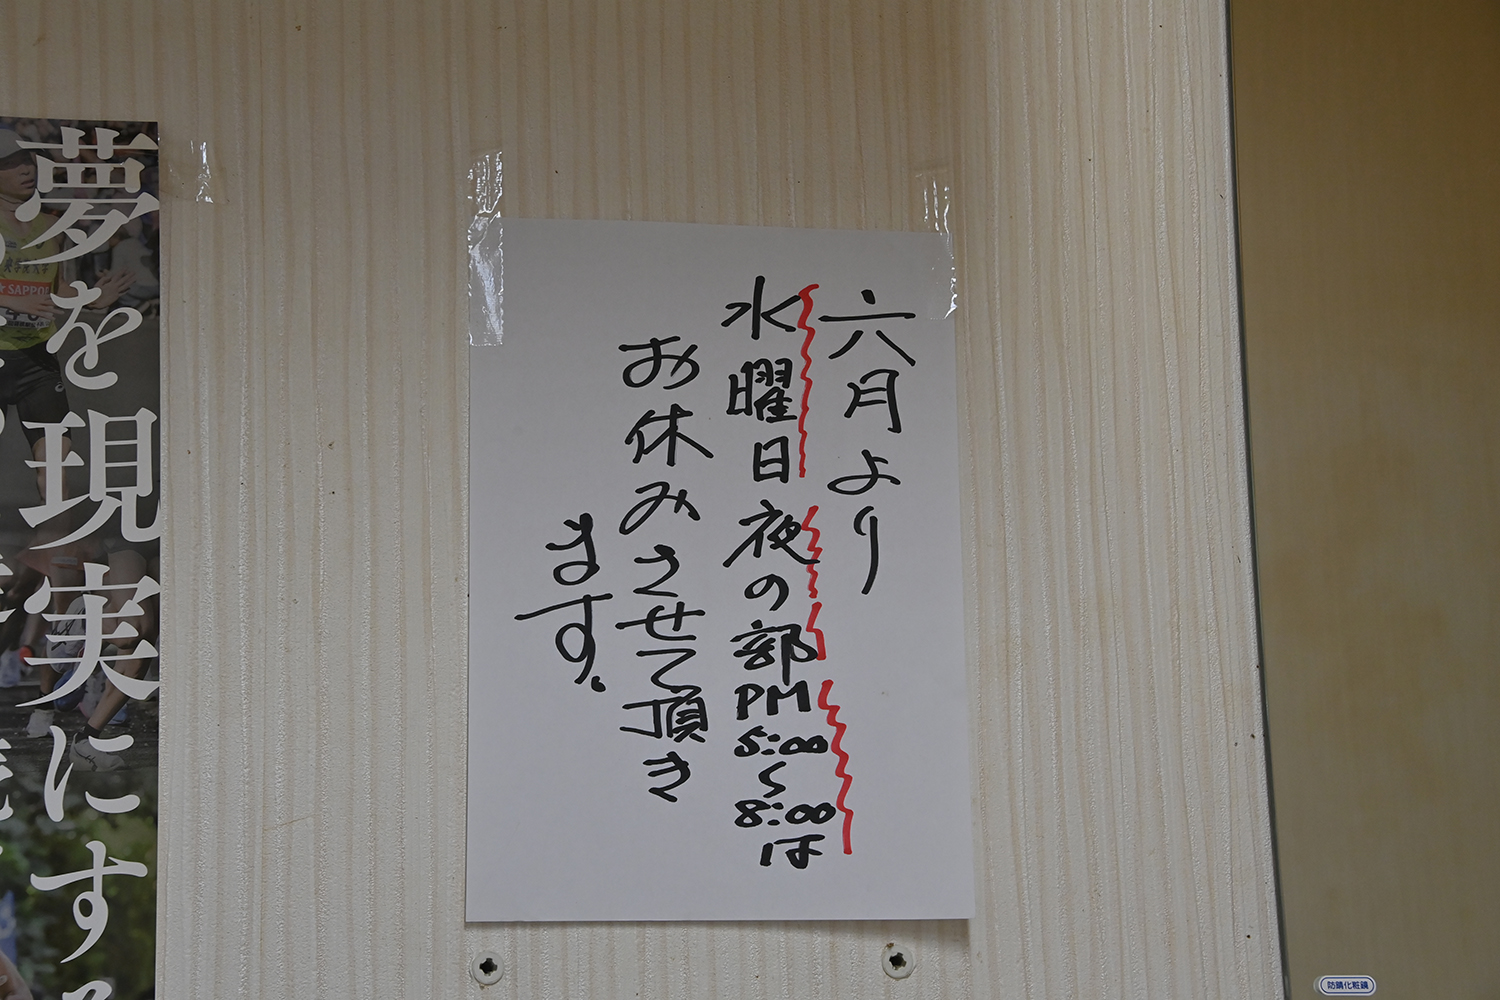 六月より
水曜日夜の部PM5:00〜8:00は
お休みさせて頂き
ます。
夢を現実にする
SAPPO
防錆化粧鏡